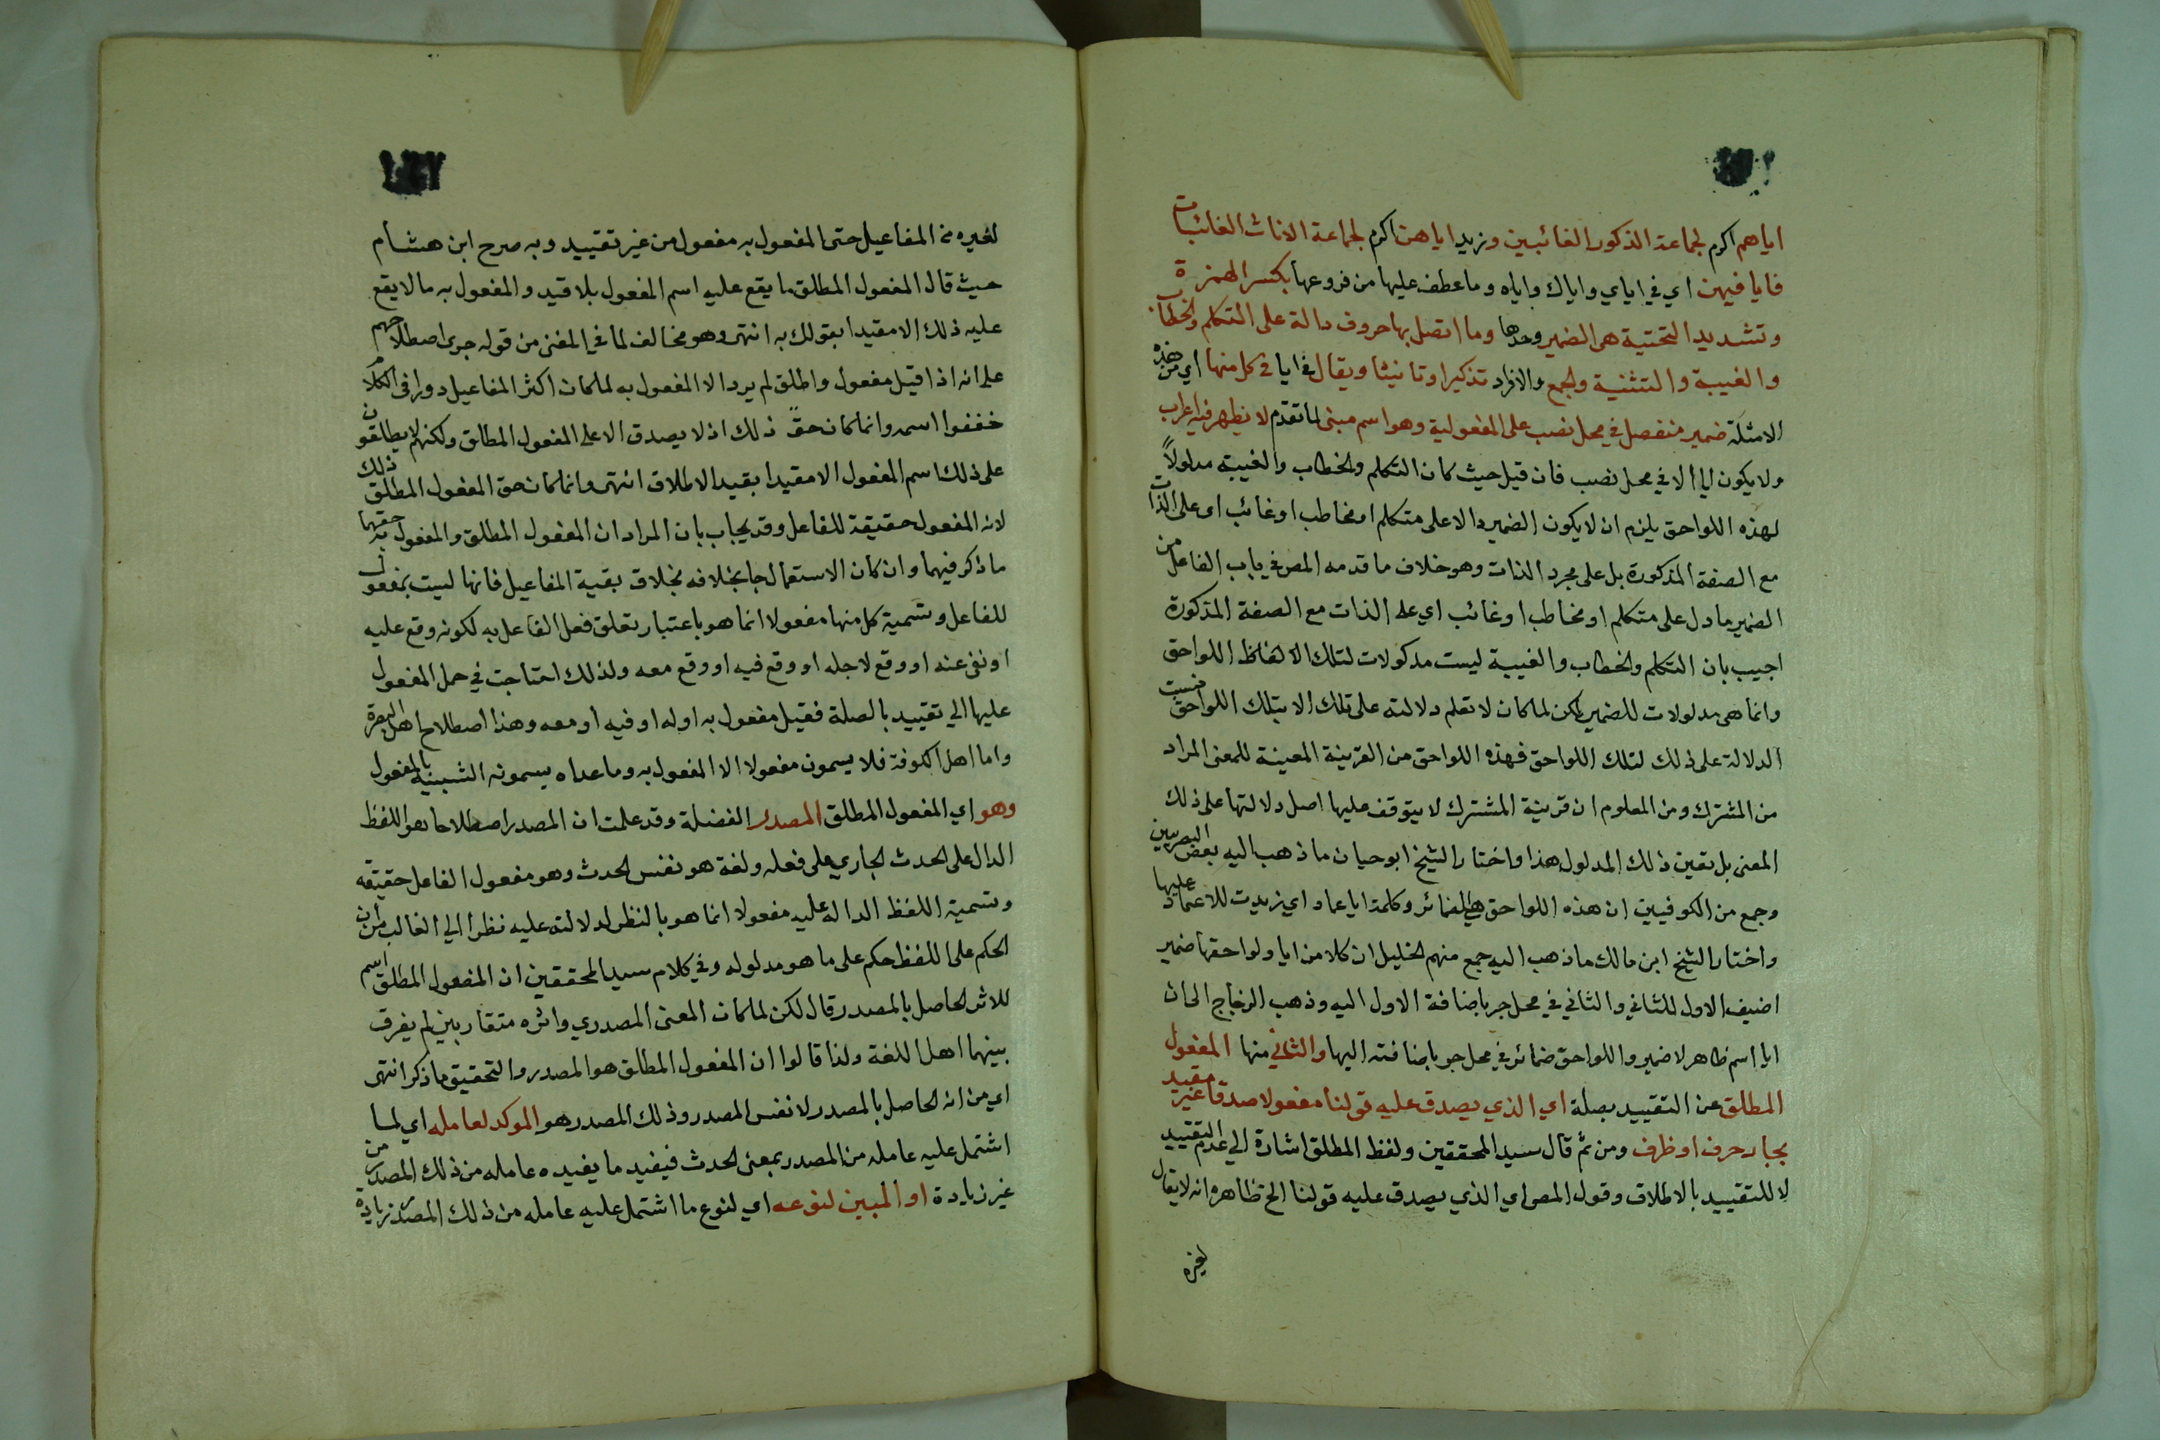 اياهم اكرم لجماعة الذكور الغائبين وزيد اياهن اكرم لجماعة الاناث الغائبات
فايا فيهن اي في اياي واياك واياه وما عطف عليها من فروعها بكسر الهمزة
وتشديد التحتية هى الضمير وحدها وما اتصل بها حروف دالة على التكلم والخطاب
والغيبة والتثنية والجمع والافراد تذكيرا وتانيثا ويقال في ايا في كل منها اي من هذه
الامثلة ضمير منفصل في محل نصب على المفعولية وهو اسم مبنى لما تقدم لا يظهر فيه اعراب
ولا يكون ايا الا في محل نصب فان قيل حيث كان التكلم والخطاب والغيبة مدلولاً
لهذه اللواحق يلزم ان لا يكون الضمير دالا على متكلم او مخاطب او غائب اى على الذات
مع الصفة المذكورة بل على مجرد الذات وهو خلاف ما قدمه المص في باب الفاعل من
الضمير ما دل على متكلم او مخاطب او غائب اي على الذات مع الصفة المذكورة
اجيب بان التكلم والخطاب والغيبة ليست مدلولات لتلك الالفاظ اللواحق
وانما هى مدلولات للضمير لكن لما كان لا تعلم دلالته على تلك الا بتلك اللواحق نسبت
الدلالة على ذلك لتلك اللواحق فهذه اللواحق من القرينة المعينة للمعنى المراد
من المشترك ومن المعلوم ان قرينة المشترك لا يتوقف عليها اصل دلالتها على ذلك
المعنى بل تعين ذلك المدلول هذا واختار الشيخ ابو حيان ما ذهب اليه بعض البصريين
وجمع من الكوفيين ان هذه اللواحق هي الضمائر وكلمة ايا عماد اي زيدت للاعتماد عليها
واختار الشيخ ابن مالك ما ذهب اليه جمع منهم الخليل ان كلا من ايا ولواحقها ضمير
اضيف الاول للثاني والثاني في محل جر باضافة الاول اليه وذهب الزجاج الى ان
ايا اسم ظاهر لا ضمير واللواحق ضمائر في محل جر باضافته اليها والثاني منها المفعول
المطلق عن التقييد بصلة اي الذي يصدق عليه قولنا مفعولا صدقا غير مقيد
بجار حرف او ظرف ومن ثم قال سيد المحققين ولفظ المطلق اشارة الي عدم التقييد
لا للتقييد بالاطلاق وقول المص اي الذي يصدق عليه قولنا الح ظاهره انه لا يقال
لغيره
لغيره من المفاعيل حتى المفعول به مفعول من غير تقييد وبه صرح ابن هشام
حيث قال المفعول المطلق ما يقع عليه اسم المفعول بلا قيد والمفعول به ما لا يقع
عليه ذلك الا مقيدا بقولك به انتهى وهو مخالف لما في المغنى من قوله جرى اصطلاحهم
على انه اذا قيل مفعول واطلق لم يرد الا المفعول به لما كان اكثر المفاعيل دورا فى الكلام
خففوا اسمه وانما كان حق ذلك اذ لا يصدق الا على المفعول المطلق ولكنهم لا يطلقون
على ذلك اسم المفعول الا مقيدا بقيد الاطلاق انتهى وانما كان حق المفعول المطلق ذلك
لانه المفعول حقيقة للفاعل وقد يجاب بان المراد ان المفعول المطلق والمفعول به حقهما
ما ذكر فيهما وان كان الاستعمال جا بخلافه بخلاف بقية المفاعيل فانها ليست بمفعول
للفاعل وتسمية كل منها مفعولا انما هو باعتبار تعلق فعل الفاعل به لكونه وقع عليه
او نفى عنه او وقع لاجله او وقع فيه او وقع معه ولذلك احتاجت في حمل المفعول
عليها الي تقييد بالصلة فقيل مفعول به او له او فيه او معه وهذا اصطلاح اهل البصرة
واما اهل الكوفة فلا يسمون مفعولا الا المفعول به وما عداه يسمونه الشبيه بالمفعول
وهو اي المفعول المطلق المصدر الفضلة وقد علمت ان المصدر اصطلاحا هو اللفظ
الدال على الحدث الجاري على فعله ولغة هو نفس الحدث وهو مفعول الفاعل حقيقه
وتسمية اللفظ الدال عليه مفعولا انما هو بالنظر لدلالته عليه نظرا الي الغالب من ان
الحكم على اللفظ حكم على ما هو مدلوله وفي كلام سيد المحققين ان المفعول المطلق اسم
للاثر الحاصل بالمصدر قال لكن لما كان المعنى المصدري واثره متقاربين لم يفرق
بينهما اهل اللغة ولذا قالوا ان المفعول المطلق هو المصدر والتحقيق ما ذكر انتهى
اي من انه الحاصل بالمصدر لا نفس المصدر وذلك المصدر هو الموكد لعامله اي لما
اشتمل عليه عامله من المصدر بمعنى الحدث فيفيد ما يفيده عامله من ذلك المصدر من
غير زيادة او المبين لنوعه اي لنوع ما اشتمل عليه عامله من ذلك المصدر بزيادة